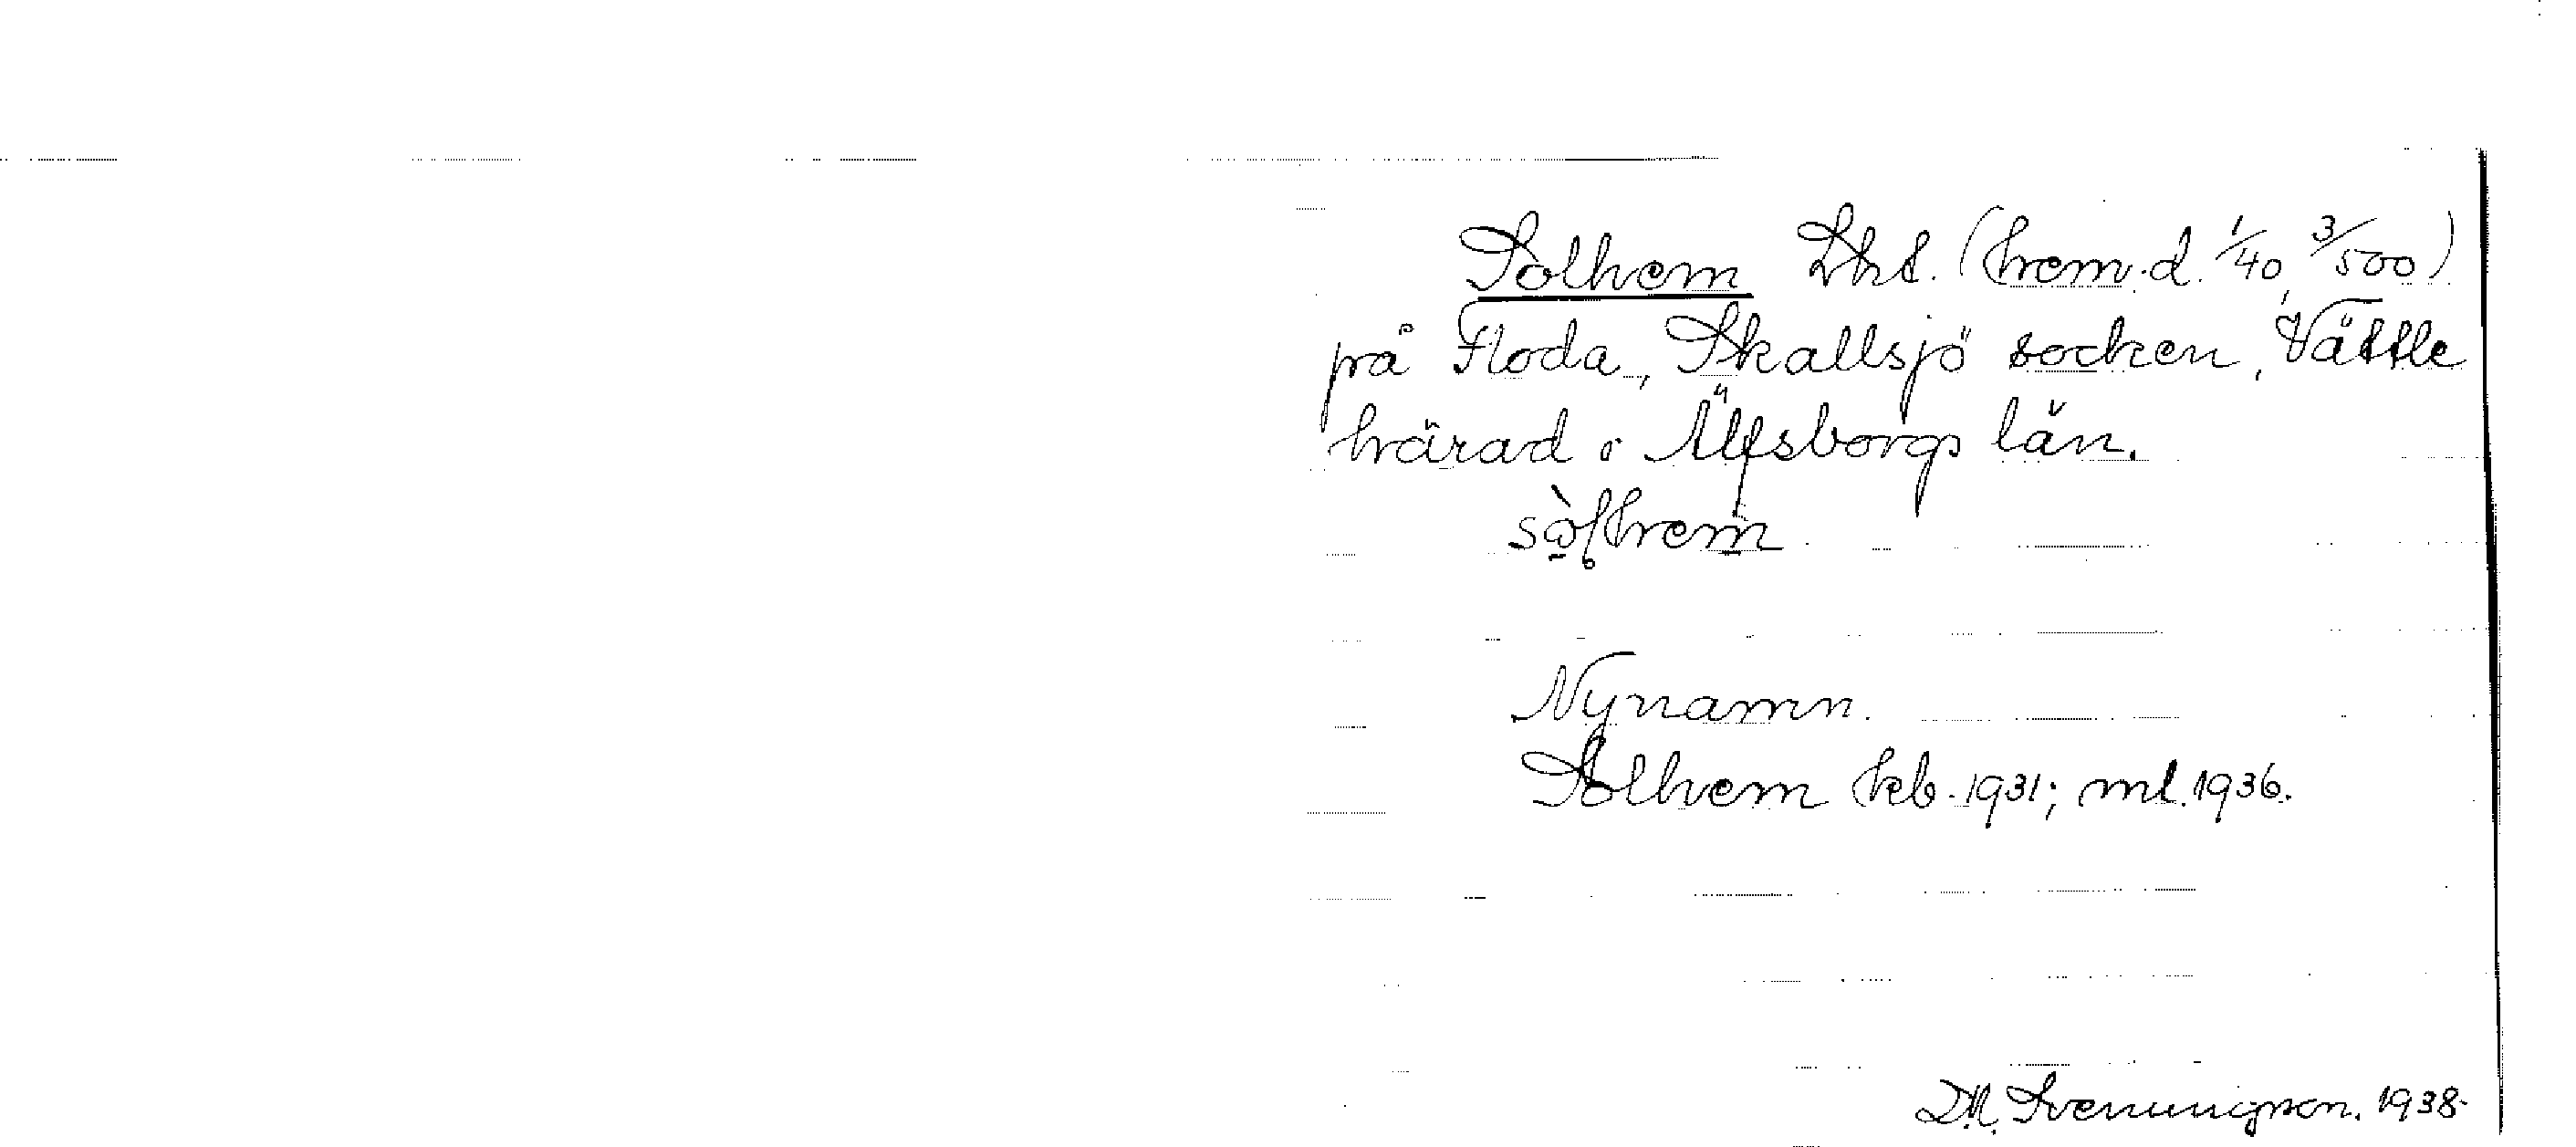 Solhem Lht. (hem.d. 1/40, 3/500)
på Floda, Skallsjö socken, Vättle
härad i Älfsborgs län.
Nynamn.
Solhem kb. 1931; ml. 1936.
D.N. Svenungson. 1938.